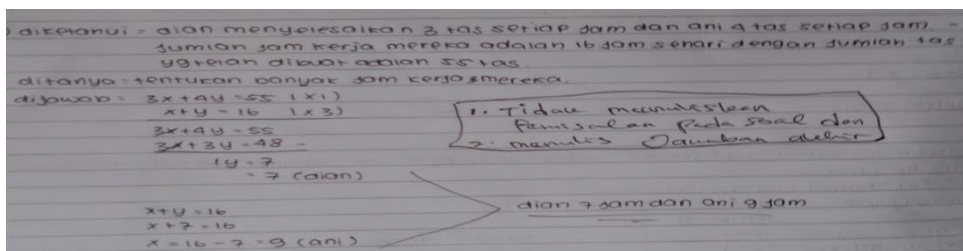 diketahui = dian menyelesaikan 3 tas setiap jam dan ani 4 tas setiap jam.
jumlah jam kerja mereka adalah 16 jam sehari dengan jumlah tas
yg telah dibuat adalah 55 tas.
ditanya = tentukan banyak jam kerja mereka.
dijawab = 3x + 4y = 55 (x1)
x + y = 16 (x3)
3x + 4y = 55
3x + 3y = 48 -
1y = 7
= 7 (dian)
x + y = 16
x + 7 = 16
x = 16 - 7 = 9 (ani)
dian 7 jam dan ani 9 jam
1. Tidak menuliskan
Pemisalan pada soal dan
2. menulis Jawaban akhir